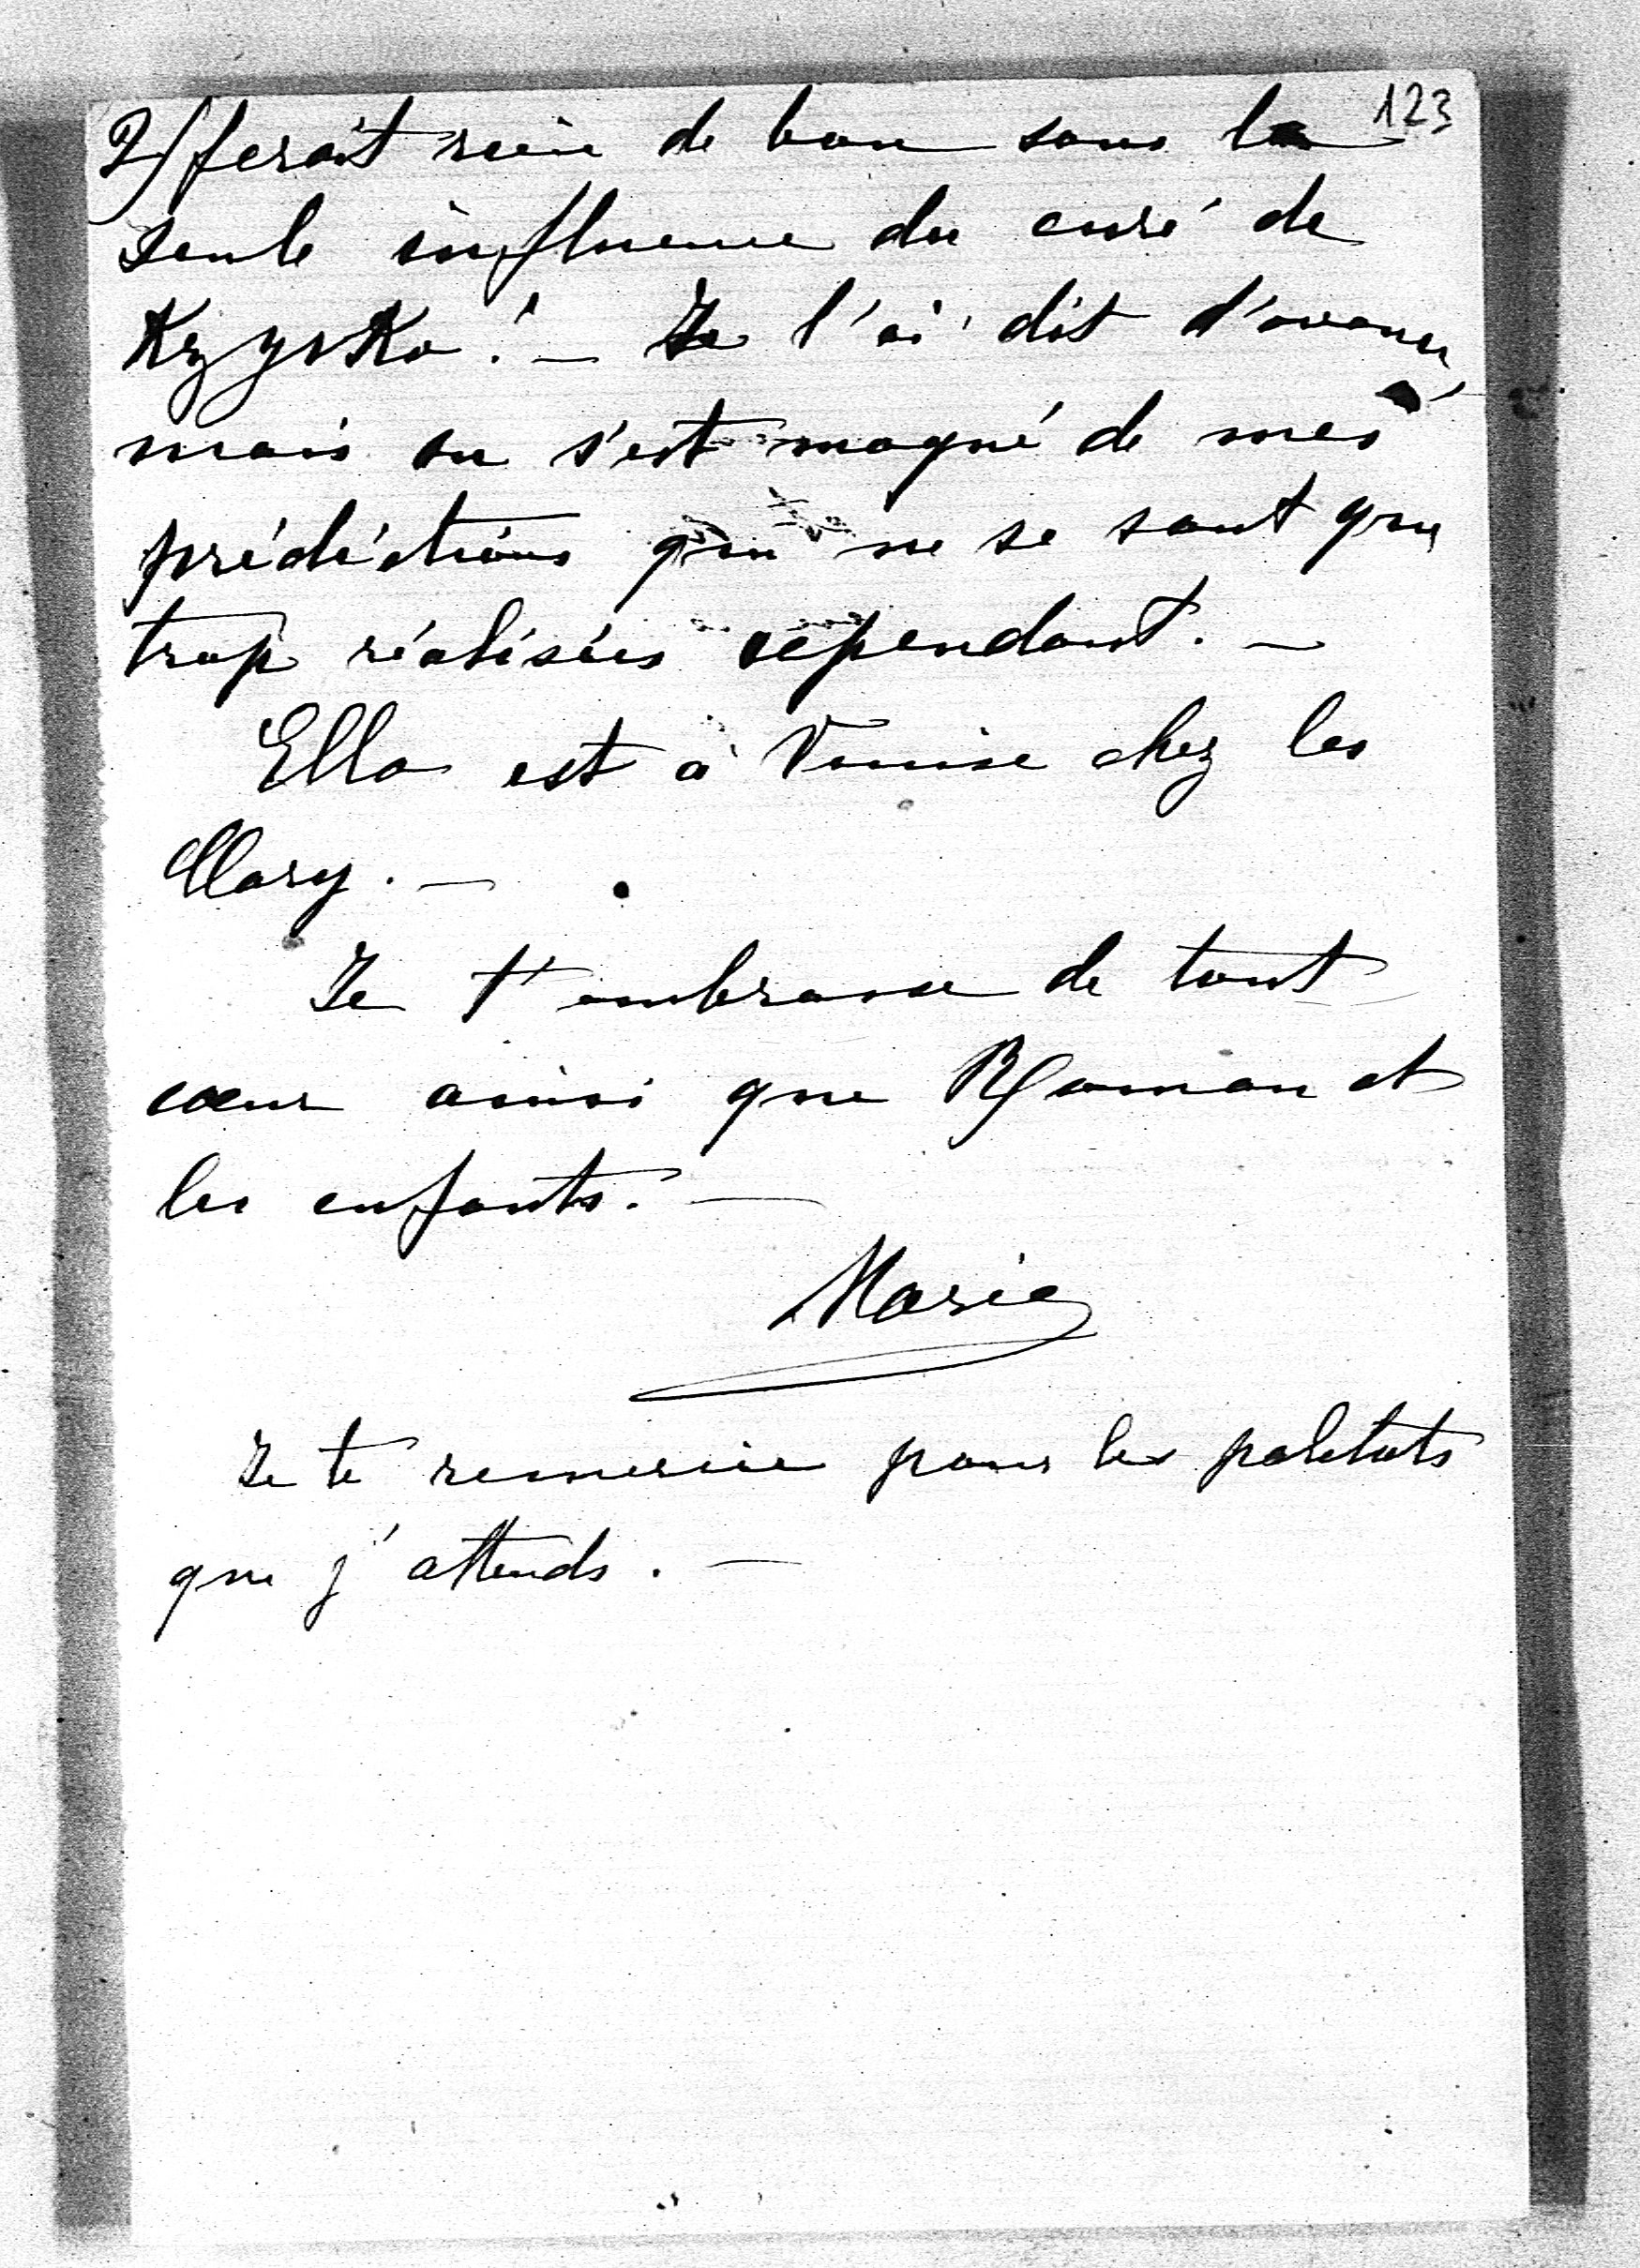 123
2/ ferait rien de bon sous la
seule influence du curé de
Krzysko! — Je l'ai dit d'avance,
mais on s'est moqué de mes
prédictions qui ne se sont que
trop réalisées cependant. —
Ella est à Venise chez les
Clary. —
Je t'embrasse de tout
cœur ainsi que Roman et
les enfants. —
Marie
Je te remercie pour les paletots
que j'attends. —